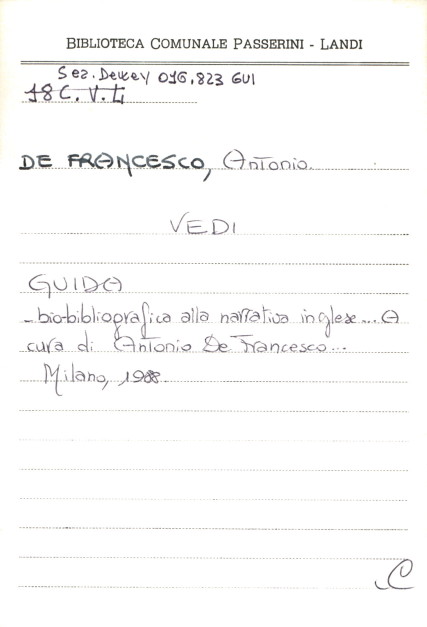 BIBLIOTECA COMUNALE PASSERINI - LANDI
Sez. Dewey 016.823 GUI
18 C. V. 4
DE FRANCESCO, Antonio.
VEDI
GUIDA
- bio-bibliografica alla narrativa inglese... A
cura di Antonio De Francesco...
Milano, 1988.
C